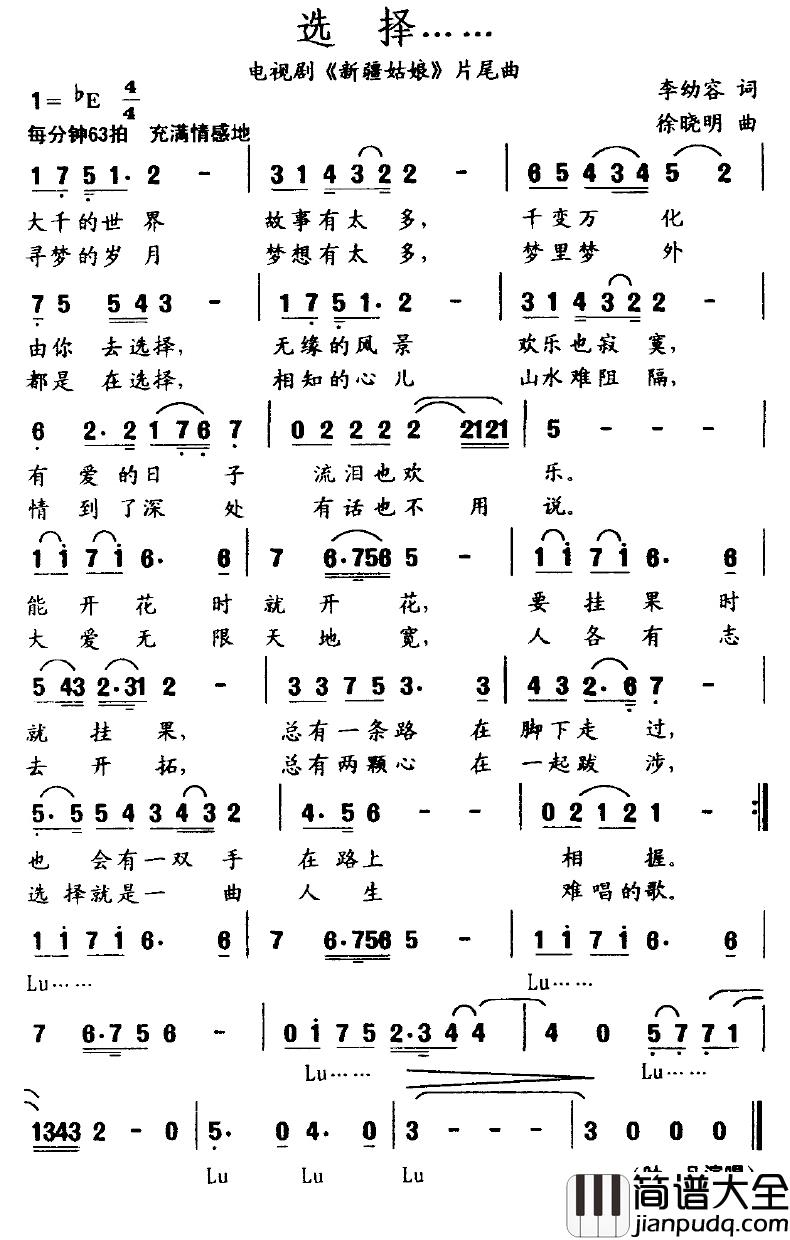 选 择……
电视剧《新疆姑娘》片尾曲
1=♭E 4/4
李幼容 词
每分钟63拍 充满情感地
徐晓明 曲
1 7 5 1· 2 - | 3 1 4 3 2 2 - | 6 5 4 3 4 5 2 |
大千的世界 故事有太多, 千变万 化
寻梦的岁月 梦想有太多, 梦里梦 外
7 5 5 4 3 - | 1 7 5 1· 2 - | 3 1 4 3 2 2 - |
由你 去选择, 无缘的风景 欢乐也寂寞,
都是 在选择, 相知的心儿 山水难阻隔,
6 2· 2 1 7 6 7 | 0 2 2 2 2 2121 | 5 - - - |
有 爱的日 子 流泪也欢 乐。
情 到了深 处 有话也不 用 说。
1 i 7 i 6· 6 | 7 6·756 5 - | 1 i 7 i 6· 6 |
能 开 花 时 就 开 花, 要 挂 果 时
大 爱 无 限 天 地 宽, 人 各 有 志
5 43 2·31 2 - | 3 3 7 5 3· 3 | 4 3 2· 6 7 - |
就 挂 果, 总有一条路 在 脚下走 过,
去 开 拓, 总有两颗心 在 一起跋 涉,
5· 5 5 4 3 4 3 2 | 4· 5 6 - - | 0 2 1 2 1 - :|
也 会有一双 手 在路上 相 握。
选 择就是一 曲 人 生 难唱的歌。
1 i 7 i 6· 6 | 7 6·756 5 - | 1 i 7 i 6· 6 |
Lu…… Lu……
7 6·7 5 6 - | 0 i 7 5 2·3 4 4 - | 4 0 5 7 7 1 |
Lu…… Lu……
1343 2 - 0 | 5· 0 4· 0 | 3 - - - | 3 0 0 0 ‖
Lu Lu Lu
演唱)
简谱大全
jianpudq.com